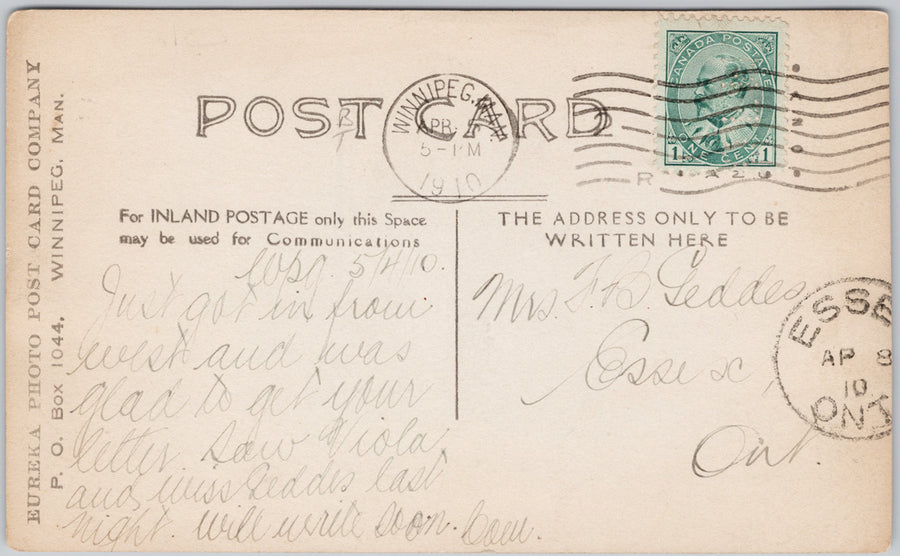 EUREKA PHOTO POST CARD COMPANY
P. O. Box 1044, WINNIPEG, MAN.
POST CARD
WINNIPEG, MAN.
APR
5-PM
1910
CANADA POSTAGE
1 ONE CENT 1
For INLAND POSTAGE only this Space
may be used for Communications
THE ADDRESS ONLY TO BE
WRITTEN HERE
Wpg. 5/4/10.
Just got in from
west and was
glad to get your
letter. Saw Viola
and Miss Geddes last
night. will write soon.
Mrs. F. B. Geddes
Essex,
Ont.
ESSEX
AP 8
10
ONT